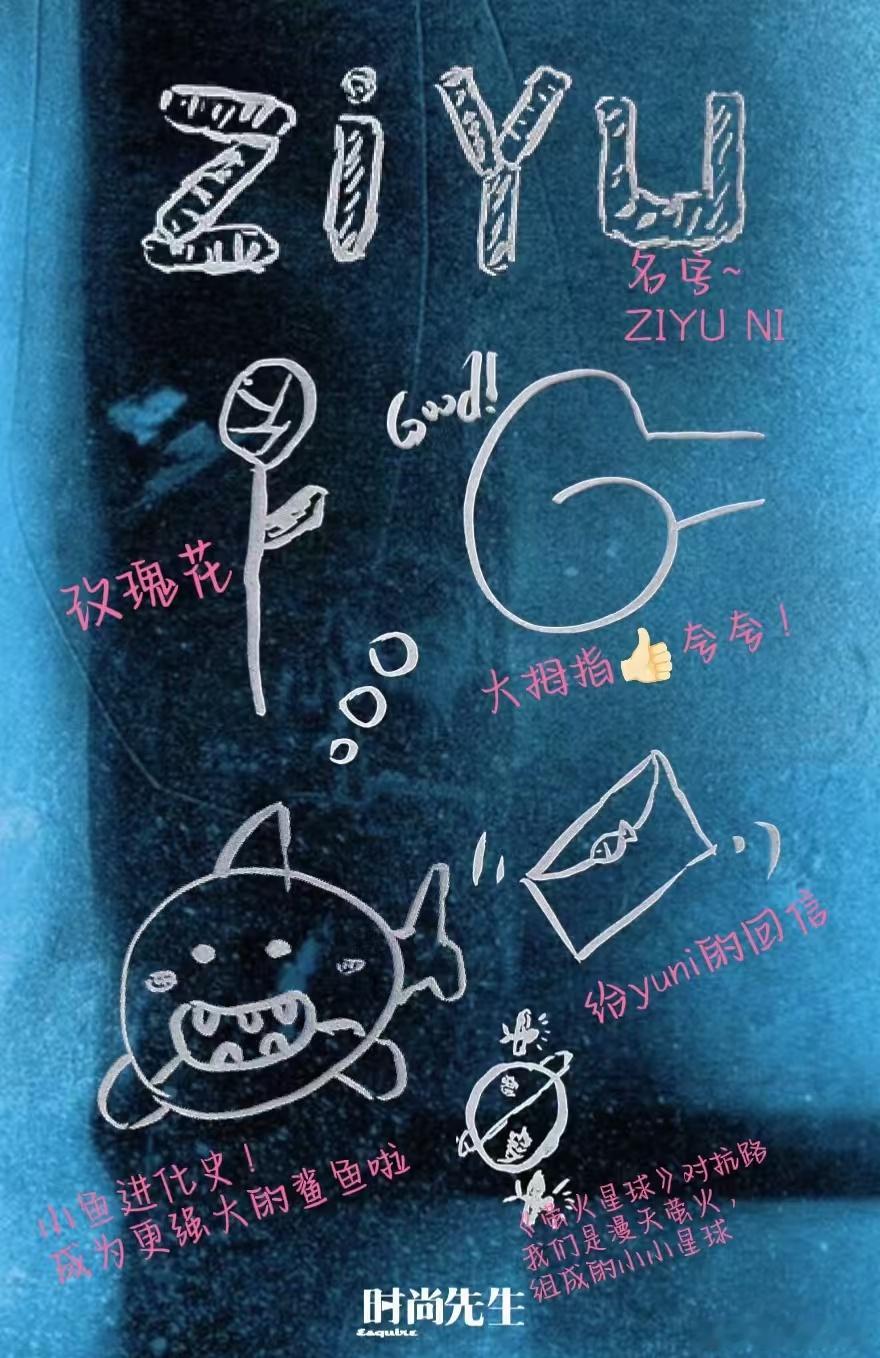 ZiYU
名字~
ZIYU NI
Good!
玫瑰花
大拇指👍夸夸！
给yuni的回信
小鱼进化史！
成为更强大的鲨鱼啦
《萤火星球》对抗路
我们是漫天萤火，
组成的小小星球
时尚先生
Esquire